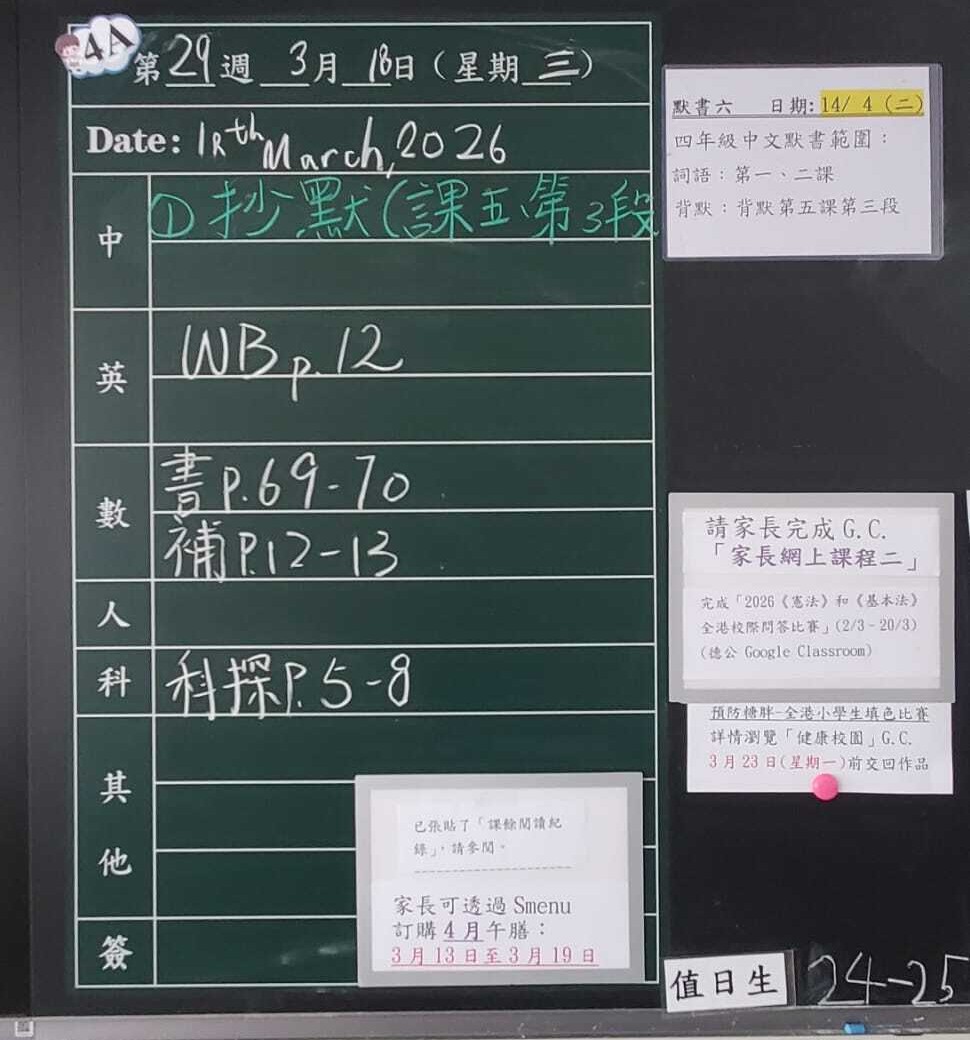 4A
第29週 3月18日(星期三)
Date: 18th March, 2026
中
①抄默(課五第3段
英
WB p.12
數
書P.69-70
補P.12-13
人
科
科探P.5-8
其他
簽
已張貼了「課餘閱讀紀
錄」,請參閱。
家長可透過 Smenu
訂購4月午膳:
3月13日至3月19日
默書六 日期: 14/ 4 (二)
四年級中文默書範圍:
詞語:第一、二課
背默:背默第五課第三段
請家長完成 G.C.
「家長網上課程二」
完成「2026《憲法》和《基本法》
全港校際問答比賽」(2/3-20/3)
(德公 Google Classroom)
預防糖胖-全港小學生填色比賽
詳情瀏覽「健康校園」G.C.
3月23日(星期一)前交回作品
值日生 24-25